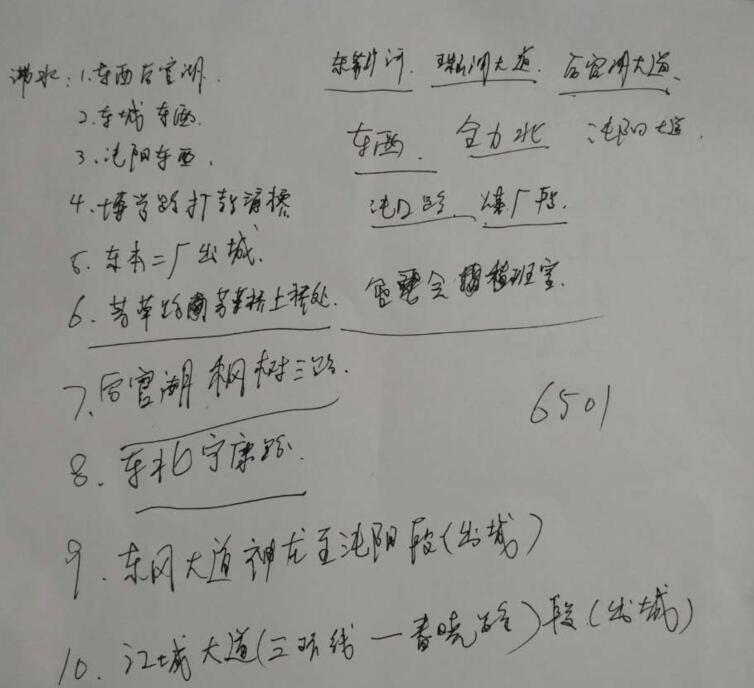 滞水:1.东西后官湖.
2.东城 东西.
3.沌阳东西.
4.博学路打鼓渡桥
5.东本二厂出城.
6.芳草路 芳草桥上桥处.
7.后官湖 枫树三路.
8.东北宁康路.
9.东风大道神龙至沌阳段(出城)
10.江城大道(三环线一春晓路)段(出城)
东荆河 珠山湖大道. 后官湖大道、
东西. 全力北 沌阳大道.
沌口路、 厂段.
值班室.
6501